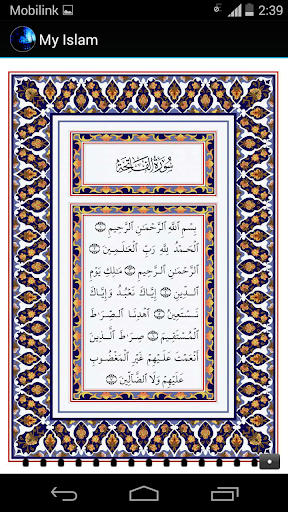 Mobilink
2:39
My Islam
سُورَةُ الفَاتِحَةِ
بِسْمِ ٱللَّهِ ٱلرَّحْمَـٰنِ ٱلرَّحِيمِ ۝
ٱلْحَمْدُ لِلَّهِ رَبِّ ٱلْعَـٰلَمِينَ ۝
ٱلرَّحْمَـٰنِ ٱلرَّحِيمِ ۝ مَـٰلِكِ يَوْمِ
ٱلدِّينِ ۝ إِيَّاكَ نَعْبُدُ وَإِيَّاكَ
نَسْتَعِينُ ۝ ٱهْدِنَا ٱلصِّرَٰطَ
ٱلْمُسْتَقِيمَ ۝ صِرَٰطَ ٱلَّذِينَ
أَنْعَمْتَ عَلَيْهِمْ غَيْرِ ٱلْمَغْضُوبِ
عَلَيْهِمْ وَلَا ٱلضَّآلِّينَ ۝